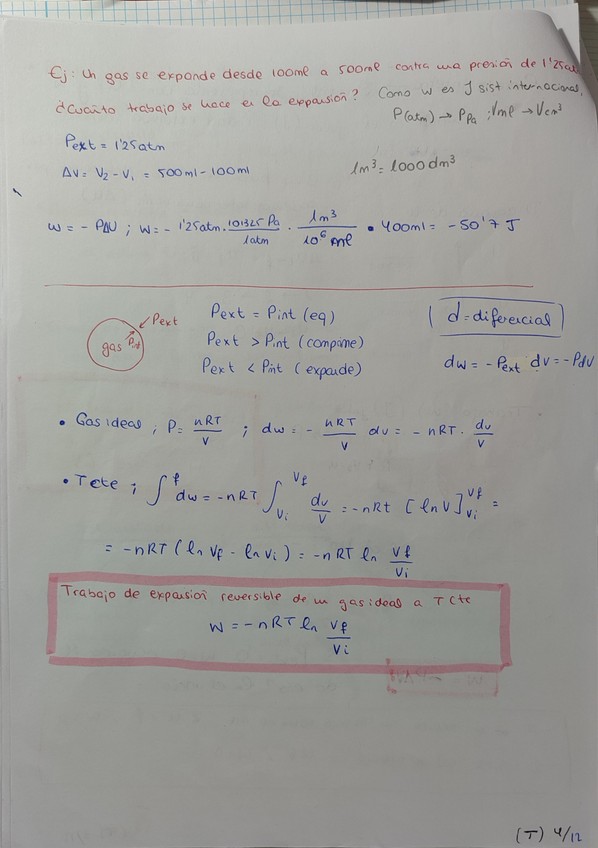 Ej: Un gas se expande desde 100ml a 500ml contra una presión de 1'25atm
¿Cuánto trabajo se hace en la expansión? Como w es J sist internacional,
P(atm) → P Pa ; Vml → Vcm³
Pext = 1'25atm
ΔV = V₂ - V₁ = 500ml - 100ml
1m³ = 1000 dm³
w = - PΔV ; W = - 1'25atm · 101325 Pa/1atm · 1m³/10⁶ ml • 400ml = -50'7 J
Pext
gas Pint
Pext = Pint (eq)
Pext > Pint (comprime)
Pext < Pint (expande)
d = diferencial
dw = -Pext dv = -Pdv
• Gas ideal ; P = nRT/V ; dw = - nRT/V dv = - nRT · dv/V
• T cte ; ∫^f dw = -nRT ∫_Vi^Vf dv/V = -nRt [ln V]_Vi^Vf =
= -nRT (ln Vf - ln Vi) = -nRT ln Vf/Vi
Trabajo de expansión reversible de un gas ideal a T Cte
W = -nRT ln Vf/Vi
(T) 4/12